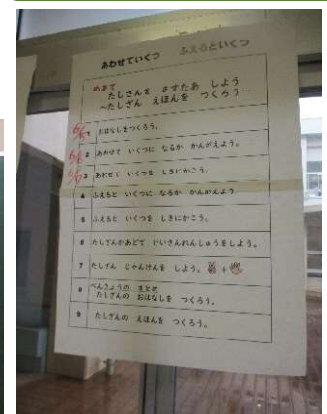 あわせていくつ ふえるといくつ
めあて
たしざんを ますたあ しよう
~たしざん えほんを つくろう
6/ 1 おはなしをつくろう。
6/ 2 あわせて いくつに なるか かんがえよう。
6/ 3 あわせて いくつを しきにかこう。
4 ふえると いくつに なるか かんがえよう
5 ふえると いくつを しきにかこう。
6 たしざんかあどで けいさんれんしゅうをしよう。
7 たしざん じゃんけんを しよう。 +
8 べんきょうの まとめ
たしざんの おはなしを つくろう。
9 たしざんの えほんを つくろう。